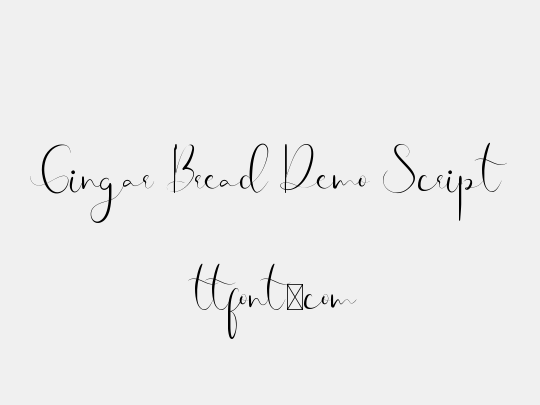 Gingar Bread Demo Script
ttfont☒com